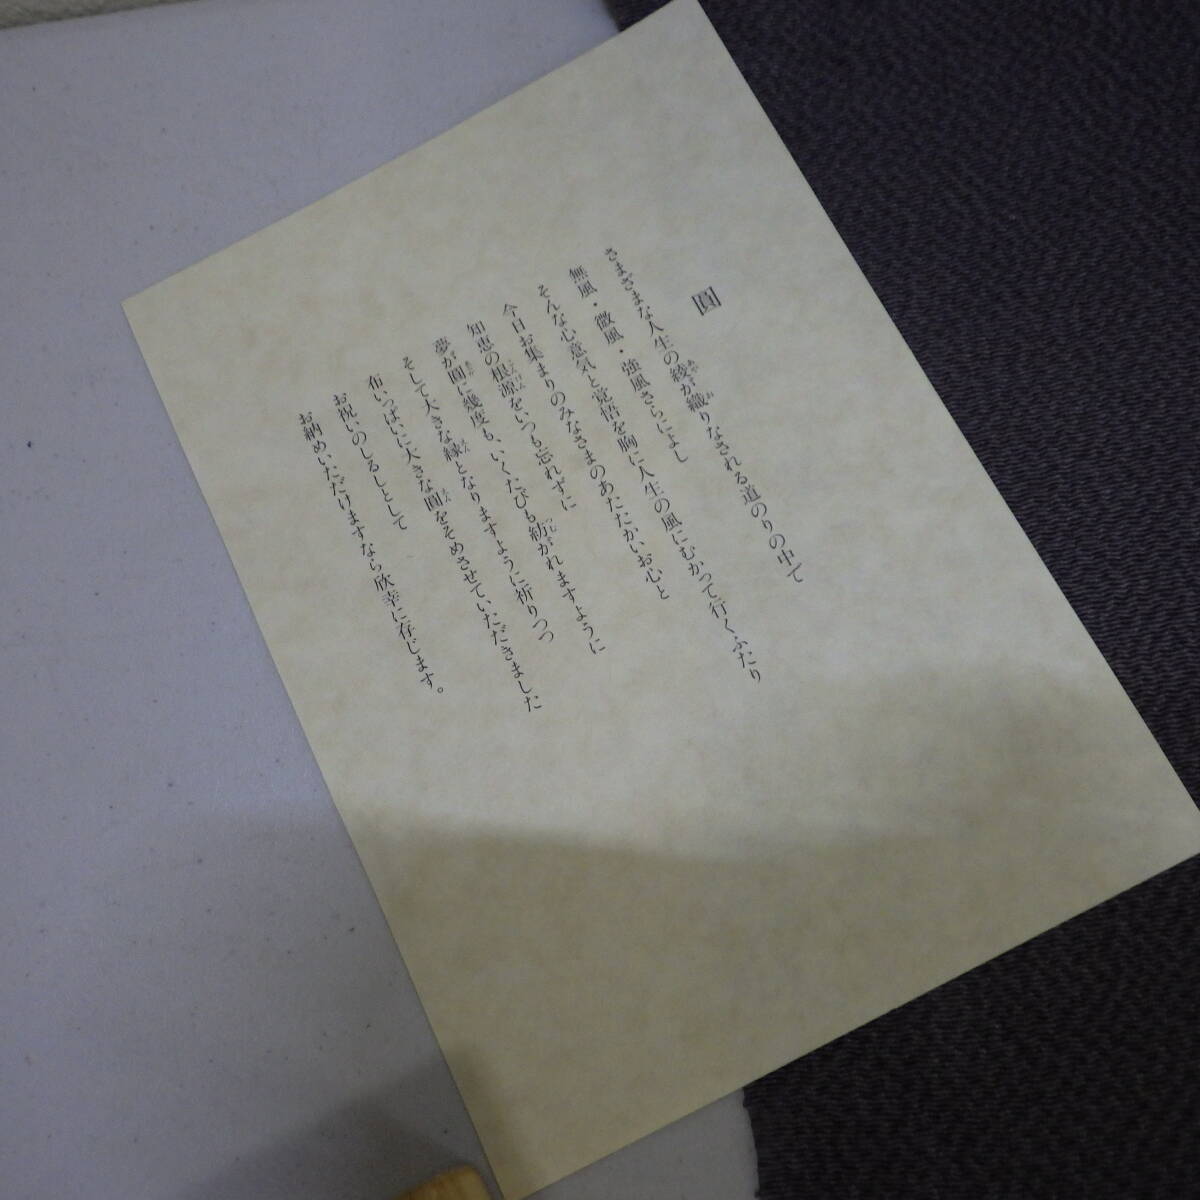 圓
さまざまな人生の綾が織りなされる道のりの中て
無風・微風・強風さらによし
そんな心意気と覚悟を胸に人生の風にむかって行くふたり
今日お集まりのみなさまのあたたかいお心と
知恵の根源をいつも忘れずに
夢が圓に幾度も、いくたびも紡がれますように
そして大きな縁となりますように祈りつつ
布いっぱいに大きな圓をそめさせていただきました
お祝いのしるしとして
お納めいただけますなら欣幸に存じます。